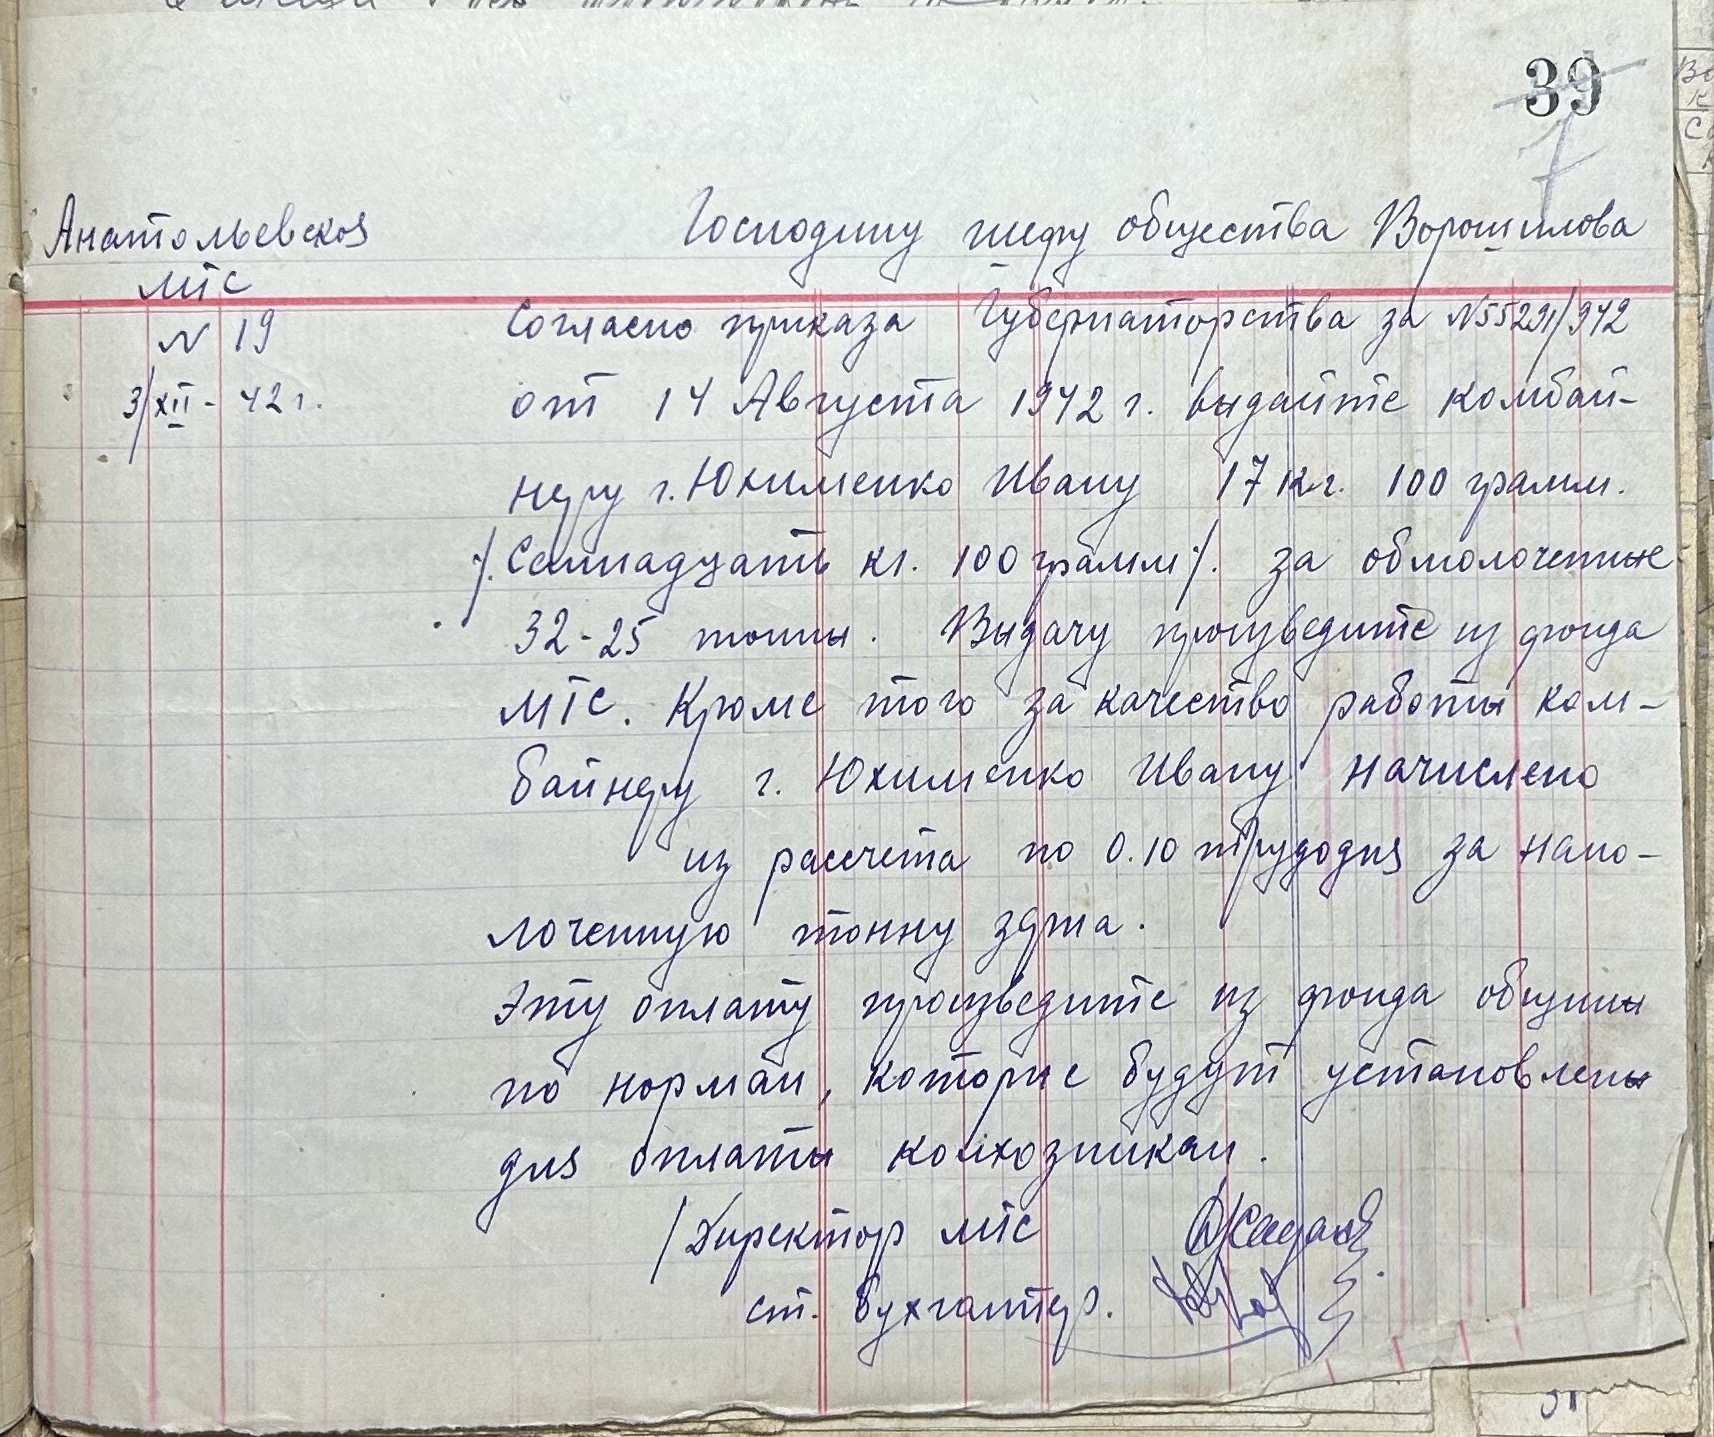 39
7
Анатольевская
МТС
N 19
3/XII - 42 г.
Господину шефу общества Ворошилова
Согласно приказа Губернаторства за N55291/942
от 14 Августа 1942 г. выдайте комбай-
неру г. Юхименко Ивану 17 кг. 100 грамм.
/. Семнадцать кг. 100 грамм /. за обмолоченные
32-25 тонны. Выдачу произведите из фонда
МТС. Кроме того за качество работы ком-
байнеру г. Юхименко Ивану начислено
из расчета по 0.10 трудодня за намо-
лоченную тонну зерна.
Эту оплату произведите из фонда общины
по нормам, которые будут установлены
для оплаты колхозникам.
/ Директор МТС
ст. бухгалтер.